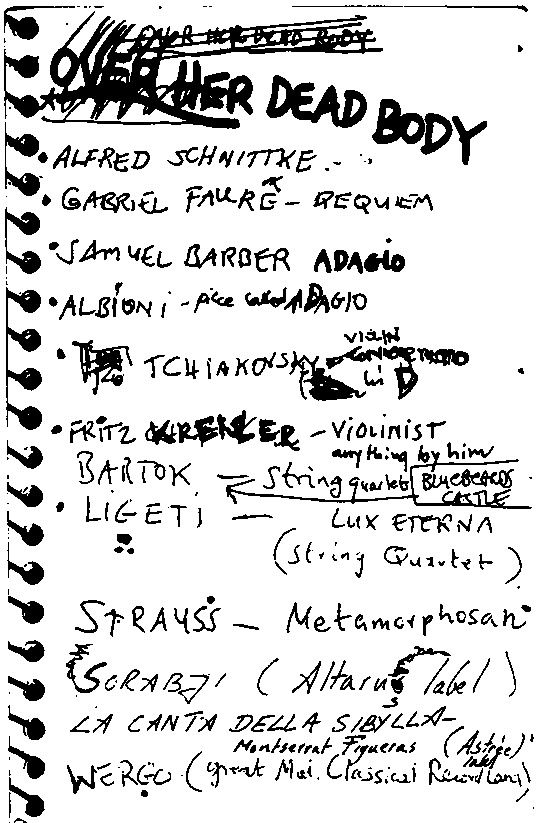 OVER HER DEAD BODY
OVER HER DEAD BODY
• ALFRED SCHNITTKE -
• GABRIEL FAURE - REQUIEM
• SAMUEL BARBER ADAGIO
• ALBIONI - piece called ADAGIO
• TCHIAKOVSKY VIOLIN
CONCERTO
in D
• FRITZ KREIZLER - VIOLINIST
anything by him
BARTOK - String quartets BLUEBEARDS
CASTLE
• LIGETI - LUX ETERNA
(String Quartet)
STRAUSS - Metamorphosan
SORABJI (Altarus label)
LA CANTA DELLA SIBYLLA -
Montserrat Figueras (Astrée)
label
WERGO (great Mod. Classical Record Label)